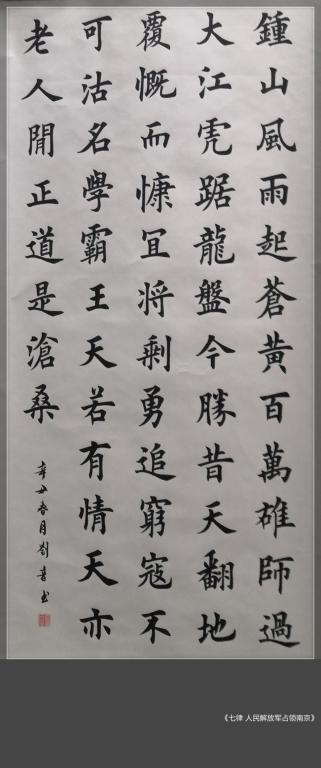 鍾山風雨起蒼黄百萬雄師過
大江虎踞龍盤今勝昔天翻地
覆慨而慷宜将剩勇追窮寇不
可沽名學霸王天若有情天亦
老人間正道是滄桑
辛丑春月劉书
《七律 人民解放军占领南京》